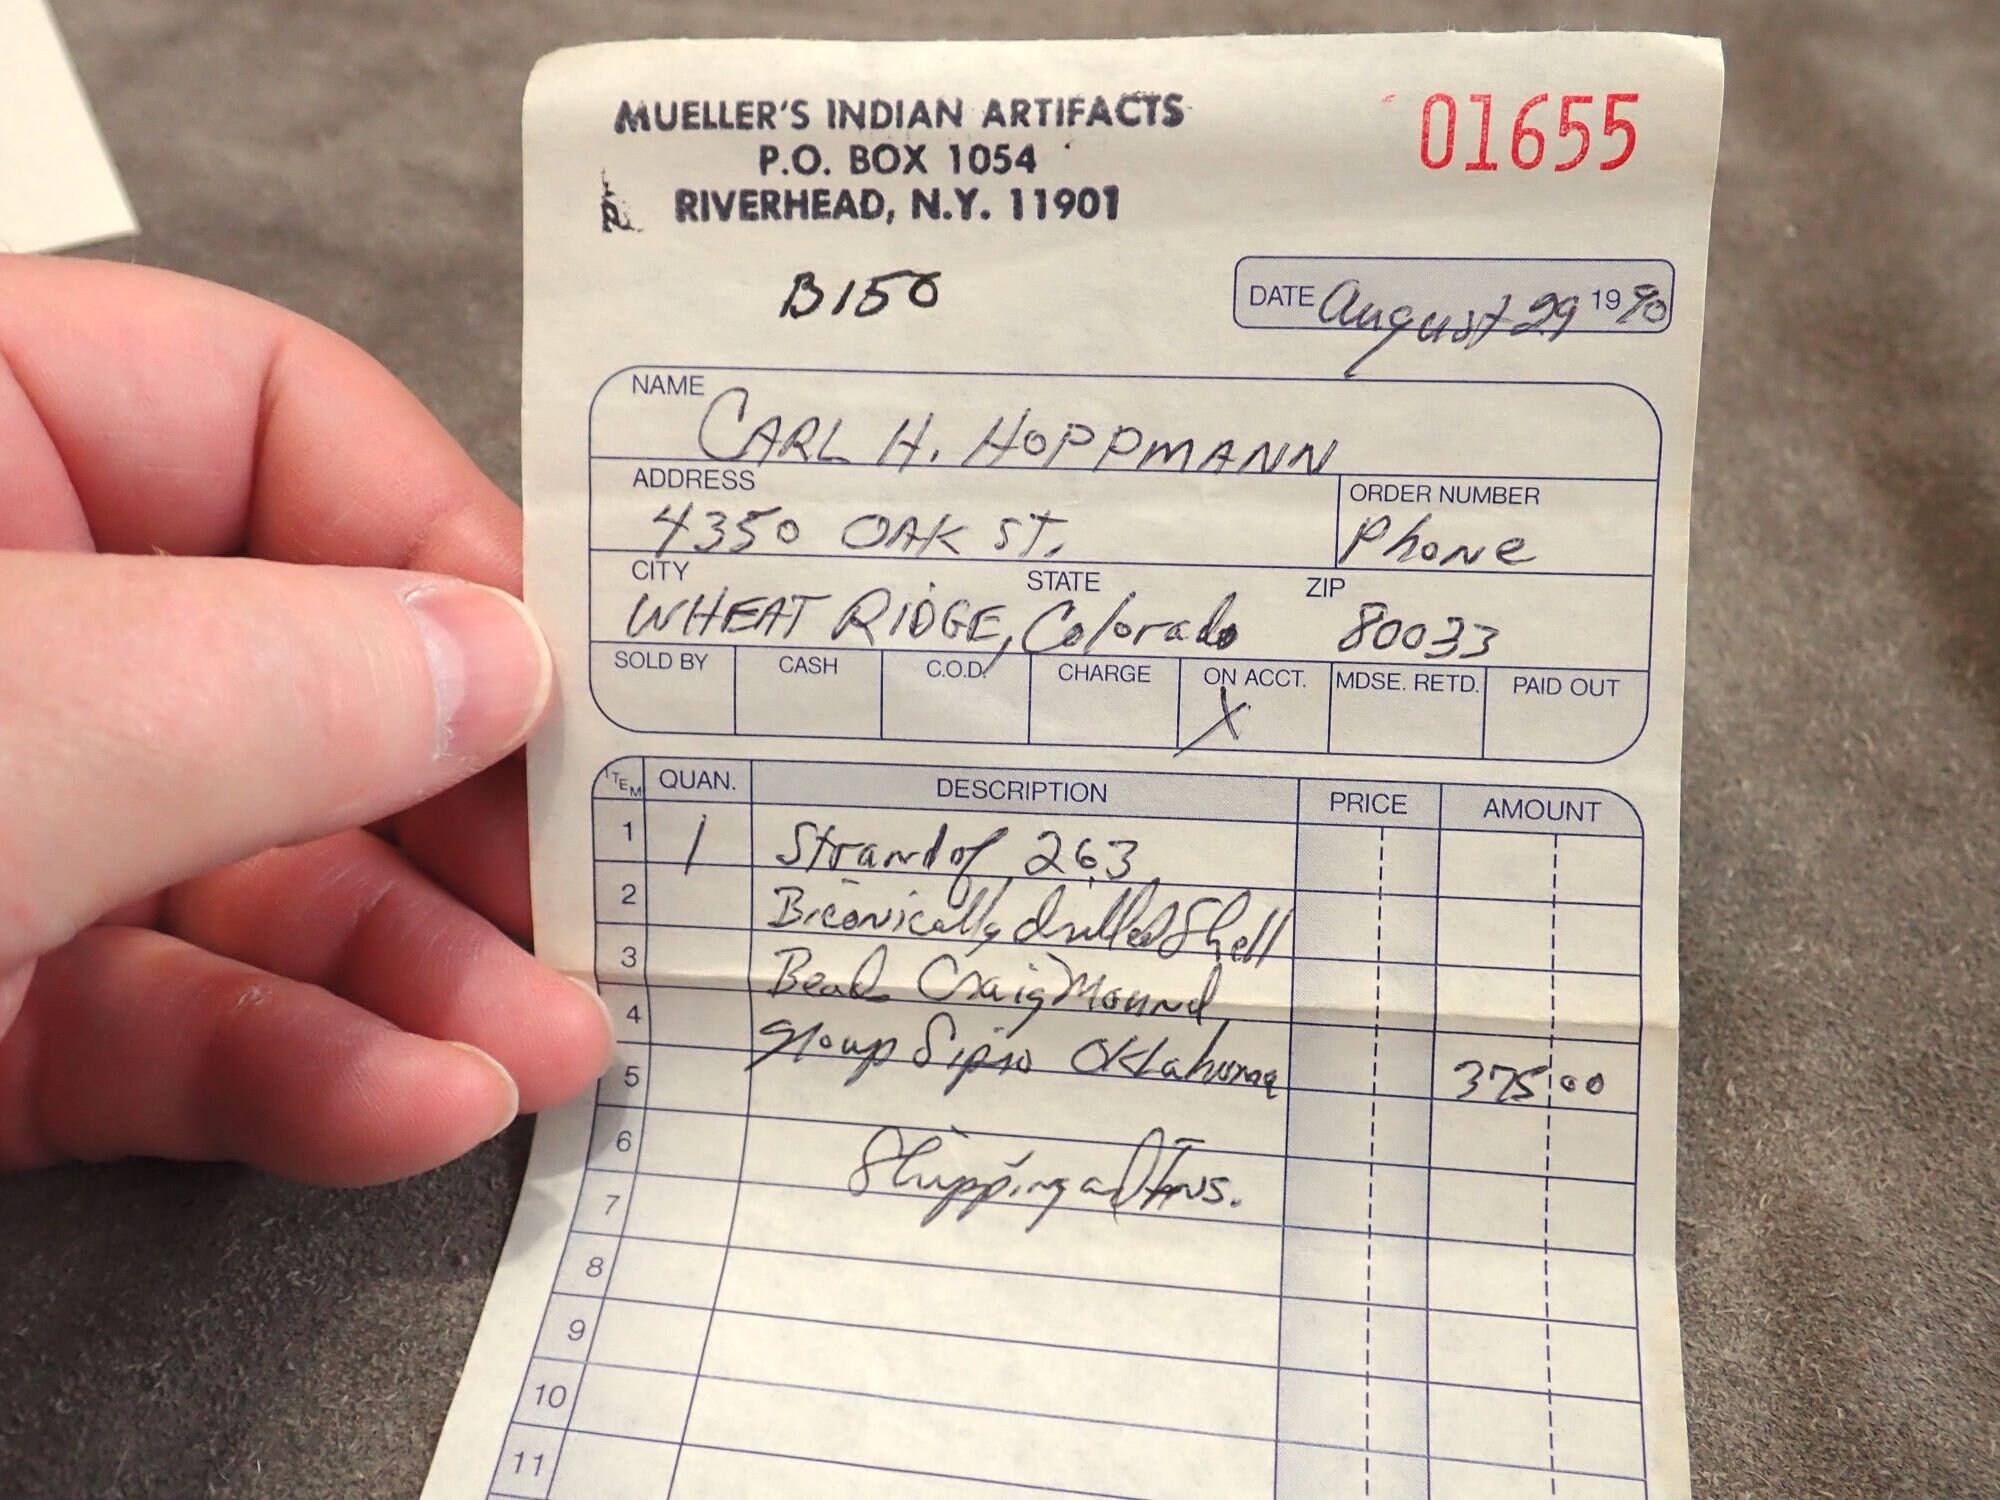 MUELLER'S INDIAN ARTIFACTS
P.O. BOX 1054
RIVERHEAD, N.Y. 11901
01655
B150
DATE August 29 1990
NAME
CARL H. HOPPMANN
ADDRESS
4350 OAK ST.
ORDER NUMBER
Phone
CITY STATE ZIP
WHEAT RIDGE, Colorado 80033
SOLD BY CASH C.O.D. CHARGE ON ACCT. MDSE. RETD. PAID OUT
X
ITEM QUAN. DESCRIPTION PRICE AMOUNT
1 1 Strand of 263
2 Biconically drilled Shell
3 Bead Craig Mound
4 group Sipro Oklahoma
5 375 00
6 Shipping and Ins.
7
8
9
10
11